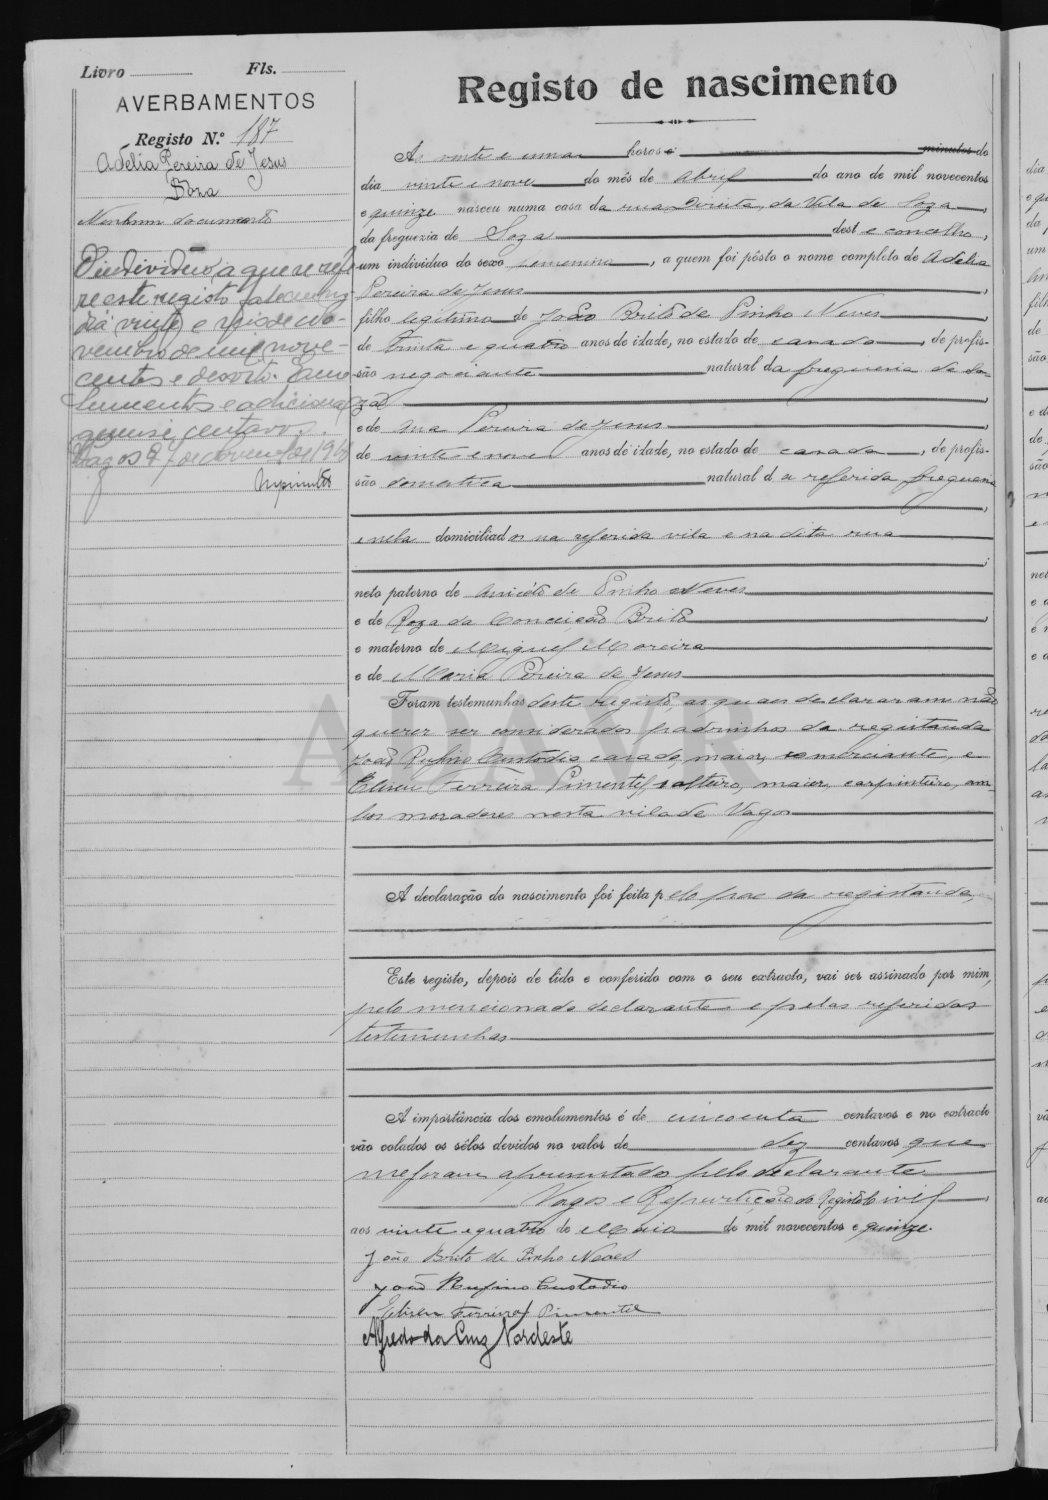 Livro Fls.
AVERBAMENTOS
Registo N.º 187
Adelia Pereira de Jesus
Soza
Nenhum documento
O individuo, a que se refe
re este registo faleceu no
dia vinte e seis de no-
vembro de mil nove-
centos e dezoito. Emo
lumentos e adicionaes
quinse centavos.
Vagos 27 de Novembro de 1918
Registo de nascimento
Ás vinte e uma horas e minutos do
dia vinte e nove do mês de Abril do ano de mil novecentos
e quinze nasceu numa casa da rua Direita, da Vila de Soza,
da freguezia de Soza deste concelho,
um individuo do sexo femenino, a quem foi pôsto o nome completo de Adelia
Pereira de Jesus,
filho legitimo de João Brito de Pinho Neves,
de trinta e quatro anos de idade, no estado de casado, de profis-
são negociante natural da freguezia de So-
za,
e de Ana Pereira de Jesus,
de vinte e nove anos de idade, no estado de casada, de profis-
são domestica natural da referida freguezia,
e nela domiciliados na referida vila e na dita rua;
neto paterno de Aniceto de Pinho Neves
e de Roza da Conceição Brito,
e materno de Miguel Moreira
e de Maria Pereira de Jesus
Foram testemunhas deste registo, as quaes declararam não
querer ser considerados padrinhos da registanda
João Rufino Custodio casado, maior, comerciante, e
Eliseu Ferreira Pimentel, solteiro, maior, carpinteiro, am-
bos moradores nesta vila de Vagos
ADAVR
A declaração do nascimento foi feita pelo pae da registanda,
Este registo, depois de lido e conferido com o seu extracto, vai ser assinado por mim,
pelo mencionado declarante e pelas referidas
testemunhas
A importância dos emolumentos é de cincoenta centavos e no extracto
vão colados os sêlos devidos no valor de dez centavos que
me foram apresentados pelo declarante
Vagos e Repartição do Registo Civil,
aos vinte e quatro de Maio de mil novecentos e quinze.
João Brito de Pinho Neves
João Rufino Custodio
Eliseu Ferreira Pimentel
Alfredo da Cruz Nordeste